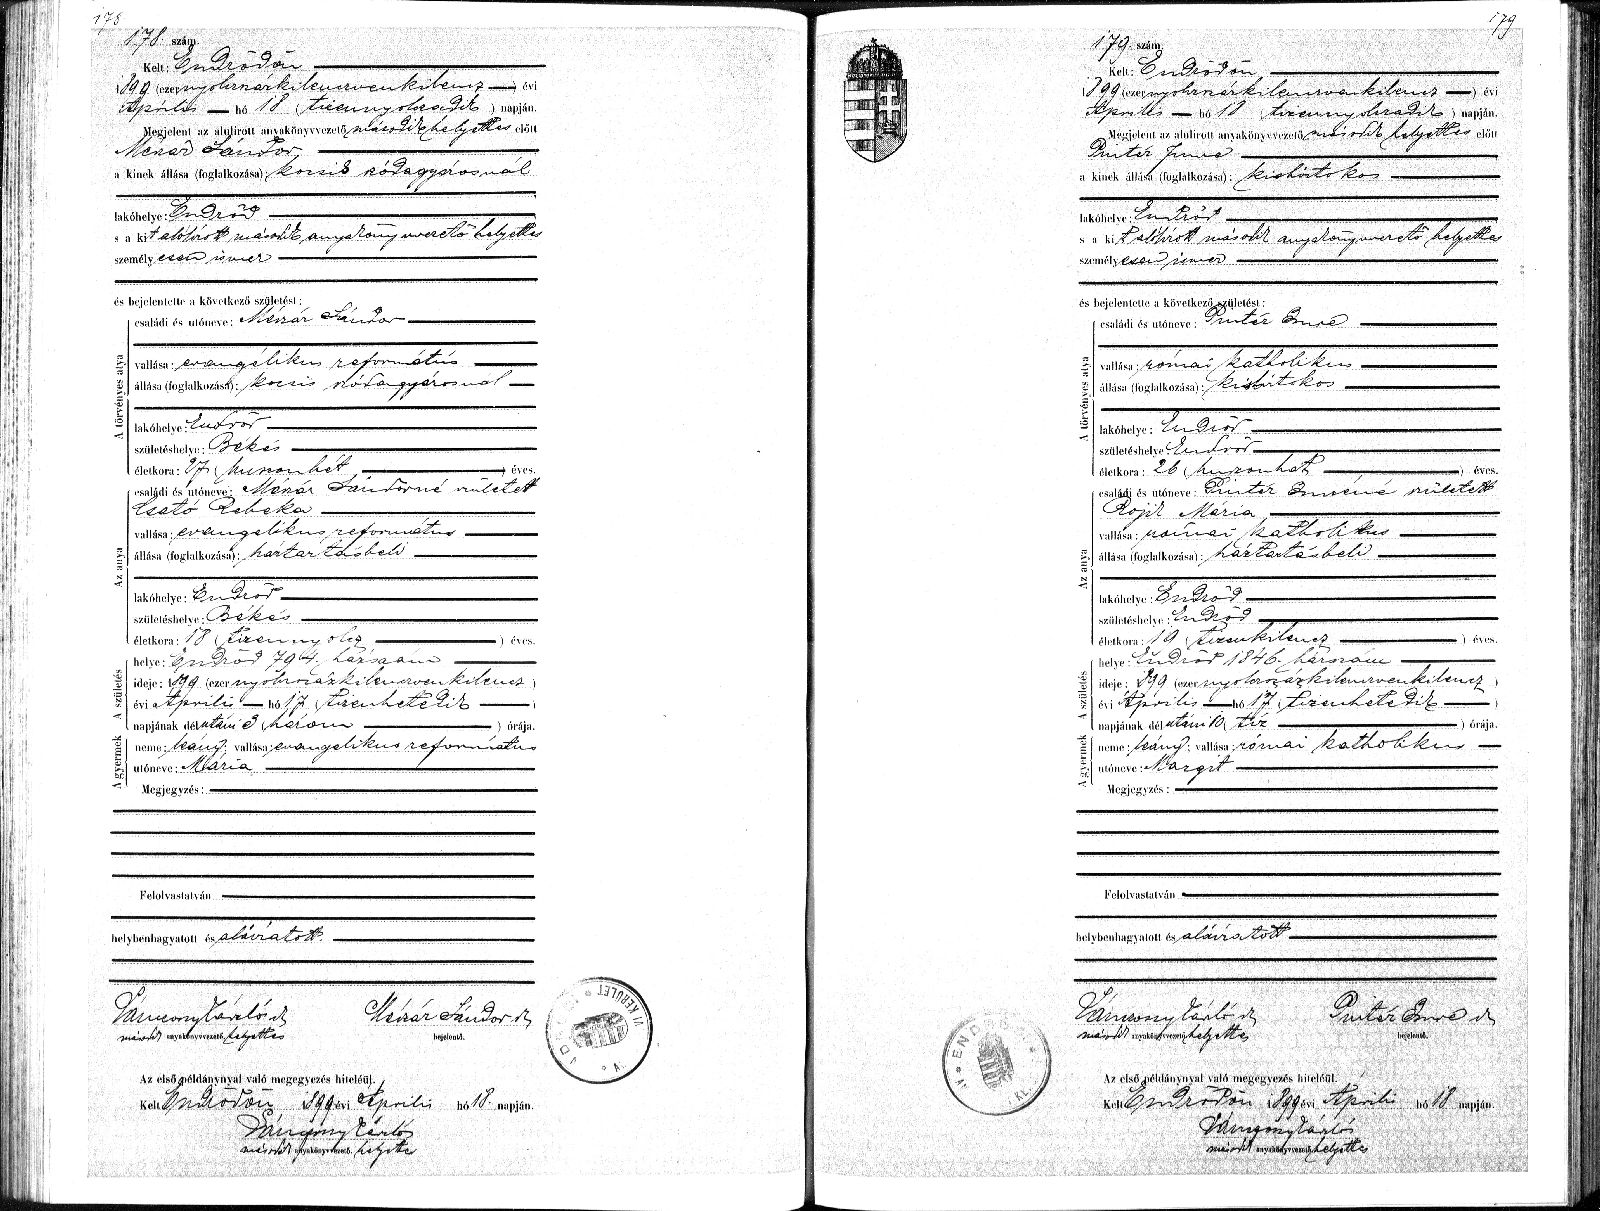 178
178. szám.
Kelt: Endrődön
1899 (ezernyolczszázkilenczvenkilencz) évi
Április hó 18 (tizennyolczadik) napján.
Megjelent az alulirott anyakönyvvezető második helyettes előtt
Mészár Sándor
a kinek állása (foglalkozása): kocsis szódagyárosnál
lakóhelye: Endrőd
s a kit alólírott második anyakönyvvezető helyettes
személyesen ismer
és bejelentette a következő születést:
A törvényes atya
családi és utóneve: Mészár Sándor
vallása: evangélikus református
állása (foglalkozása): kocsis szódagyárosnál
lakóhelye: Endrőd
születéshelye: Békés
életkora: 27 (huszonhét) éves.
Az anya
családi és utóneve: Mészár Sándorné született
Csató Rebeka
vallása: evangélikus református
állása (foglalkozása): háztartásbeli
lakóhelye: Endrőd
születéshelye: Békés
életkora: 18 (tizennyolcz) éves.
A születés
helye: Endrőd 794. házszám
ideje: 1899 (ezernyolczszázkilenczvenkilencz)
évi Április hó 17 (tizenhetedik)
napjának délutáni 3 (három) órája.
A gyermek
neme: leány; vallása: evangélikus református
utóneve: Mária
Megjegyzés:
Felolvastatván
helybenhagyatott és aláíratott.
Mészár Sándor sk
második anyakönyvvezető helyettes
bejelentő.
VI KERÜLET
Az első példánynyal való megegyezés hiteléül.
Kelt Endrődön 1899 évi Április hó 18. napján.
második anyakönyvvezető. helyettes
179
179. szám.
Kelt: Endrődön
1899 (ezernyolczszázkilenczvenkilencz) évi
Április hó 18 (tizennyolczadik) napján.
Megjelent az alulirott anyakönyvvezető második helyettes előtt
Pintér Imre
a kinek állása (foglalkozása): kisbirtokos
lakóhelye: Endrőd
s a kit alólírott második anyakönyvvezető helyettes
személyesen ismer
és bejelentette a következő születést:
A törvényes atya
családi és utóneve: Pintér Imre
vallása: római katholikus
állása (foglalkozása): kisbirtokos
lakóhelye: Endrőd
születéshelye Endrőd
életkora: 26 (huszonhat) éves.
Az anya
családi és utóneve: Pintér Imréné született
Rojik Mária
vallása: római katholikus
állása (foglalkozása): háztartásbeli
lakóhelye: Endrőd
születéshelye: Endrőd
életkora: 19 (tizenkilencz) éves.
A születés
helye: Endrőd 1846. házszám
ideje: 1899 (ezernyolczszázkilenczvenkilencz)
évi Április hó 17 (tizenhetedik)
napjának délutáni 10 (tíz) órája.
A gyermek
neme: leány; vallása: római katholikus
utóneve: Margit
Megjegyzés:
Felolvastatván
helybenhagyatott és aláíratott
Pintér Imre sk
második anyakönyvvezető helyettes
bejelentő.
ENDRŐD
Az első példánynyal való megegyezés hiteléül.
Kelt Endrődön 1899 évi Április hó 18 napján.
második anyakönyvvezető helyettes